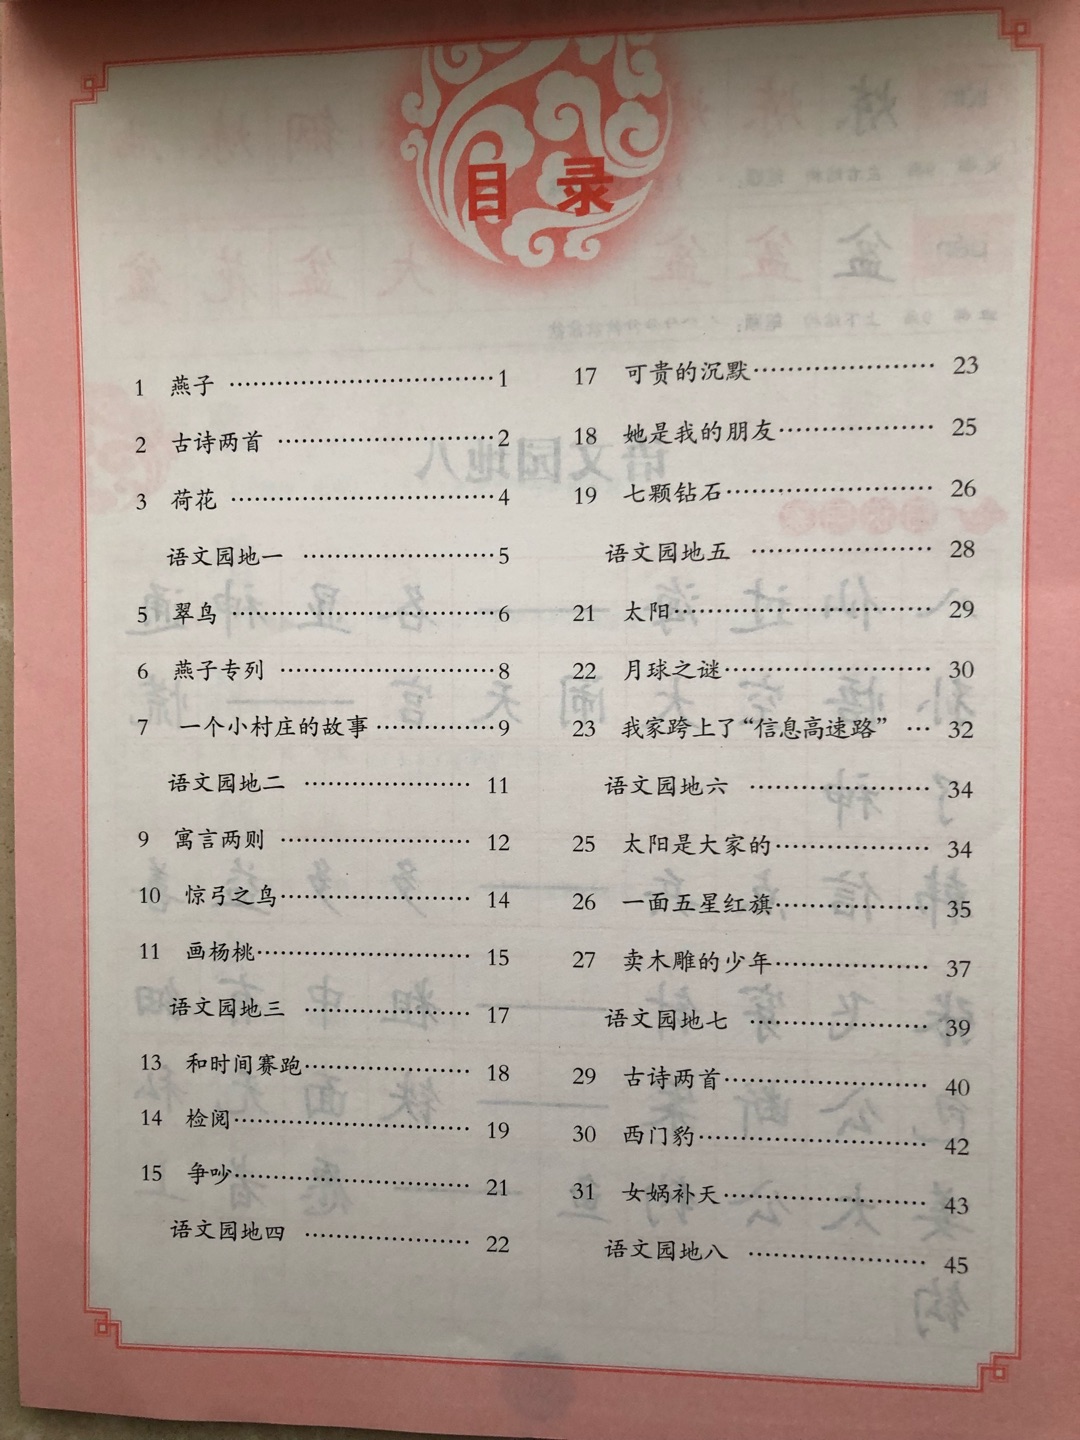 目录
1 燕子 ………………………………1
2 古诗两首 …………………………2
3 荷花 ………………………………4
语文园地一 ………………………5
5 翠鸟 ………………………………6
6 燕子专列 …………………………8
7 一个小村庄的故事 ……………9
语文园地二 …………………… 11
9 寓言两则 ……………………… 12
10 惊弓之鸟……………………… 14
11 画杨桃………………………… 15
语文园地三 …………………… 17
13 和时间赛跑…………………… 18
14 检阅…………………………… 19
15 争吵…………………………… 21
语文园地四 …………………… 22
17 可贵的沉默…………………… 23
18 她是我的朋友………………… 25
19 七颗钻石……………………… 26
语文园地五 …………………… 28
21 太阳…………………………… 29
22 月球之谜……………………… 30
23 我家跨上了“信息高速路” … 32
语文园地六 …………………… 34
25 太阳是大家的………………… 34
26 一面五星红旗………………… 35
27 卖木雕的少年………………… 37
语文园地七 …………………… 39
29 古诗两首……………………… 40
30 西门豹………………………… 42
31 女娲补天……………………… 43
语文园地八 …………………… 45